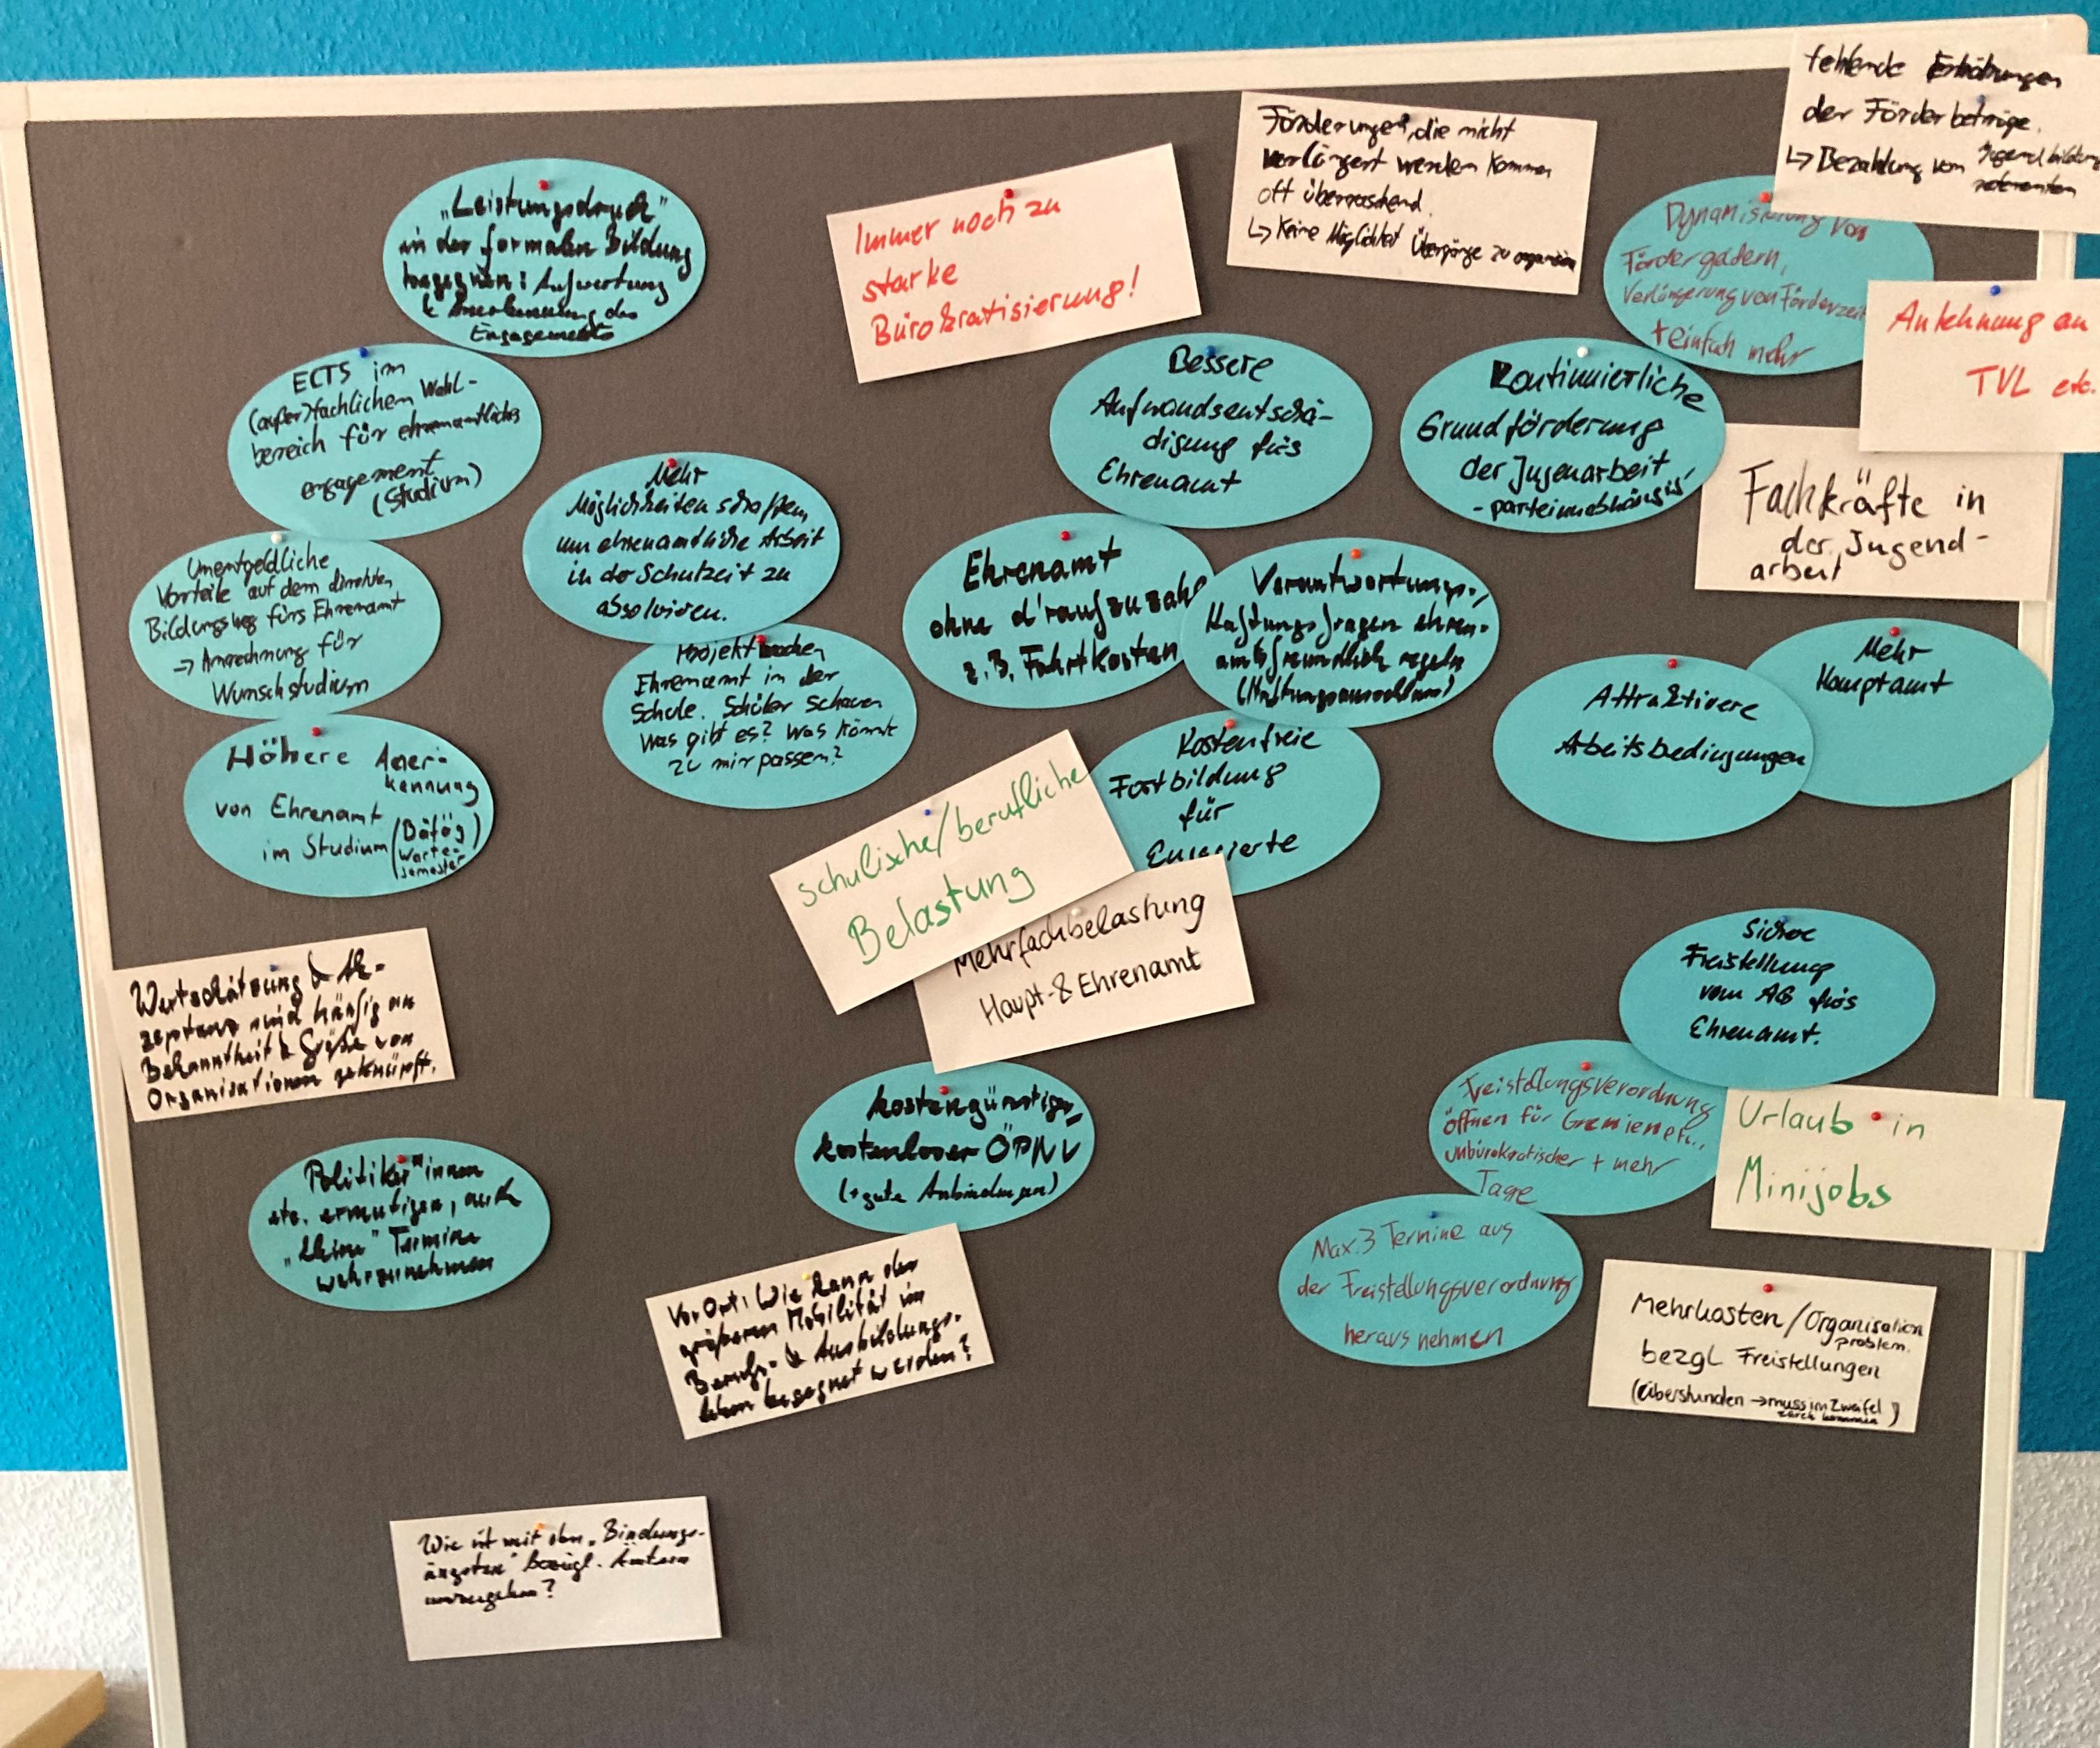 fehlende Erhöhungen
der Förderbeträge.
↳ Bezahlung von Jugendbildungs
referenten
Förderungen, die nicht
verlängert werden kommen
oft überraschend.
↳ Keine Möglichkeit Übergänge zu organisieren
"Leistungsdruck"
in der formalen Bildung
begegnen: Aufwertung
& Anerkennung des
Engagements
Immer noch zu
starke
Bürokratisierung!
Dynamisierung von
Fördergeldern,
Verlängerung von Förderzeit
+ einfach mehr
Anlehnung an
TVL etc.
ECTS im
(außer)fachlichen Wahl-
bereich für ehrenamtliches
engagement
(Studium)
Bessere
Aufwandsentschä-
digung fürs
Ehrenamt
Kontinuierliche
Grundförderung
der Jugenarbeit
- parteiunabhängig
Fachkräfte in
der Jugend-
arbeit
Mehr
Möglichkeiten schaffen,
um ehrenamtliche Arbeit
in der Schulzeit zu
absolvieren.
Unentgeldliche
Vorteile auf dem direkten
Bildungsweg fürs Ehrenamt
⇒ Anrechnung für
Wunschstudium
Ehrenamt
ohne d'raufzuzahl
z.B. Fahrtkosten
Verantwortungs-,
Haftungsfragen ehren-
amtsfreundlich regeln
Projektwochen
Ehrenamt in der
Schule. Schüler schauen
Was gibt es? Was könnt
zu mir passen?
Mehr
Hauptamt
Attraktivere
Arbeitsbedingungen
Höhere Aner-
kennung
von Ehrenamt
im Studium (Bafög
Warte-
semester)
Kostenfreie
Fortbildung
für
schulische/berufliche
Belastung
Mehrfachbelastung
Haupt- & Ehrenamt
Sichere
Freistellung
vom AG fürs
Ehrenamt.
Wertschätzung & Ak-
zeptanz sind häufig an
Bekanntheit & Größe von
Organisationen geknüpft.
Freistellungsverordnung
öffnen für Gremien etc.,
unbürokratischer + mehr
Tage
Urlaub in
Minijobs
kostengünstiger,
kostenloser ÖPNV
(+ gute Anbindungen)
Politiker*innen
etc. ermutigen, auch
"kleine" Termine
wahrzunehmen
Max. 3 Termine aus
der Freistellungsverordnung
heraus nehmen
Vor Ort: Wie kann der
größeren Mobilität im
Berufs- & Ausbildungs-
leben begegnet werden?
Mehrkosten/Organisation
problem.
bezgl. Freistellungen
(Überstunden → muss im Zweifel
Wie ist mit den "Bindungs-
ängsten" bezügl. Ämtern
umzugehen?